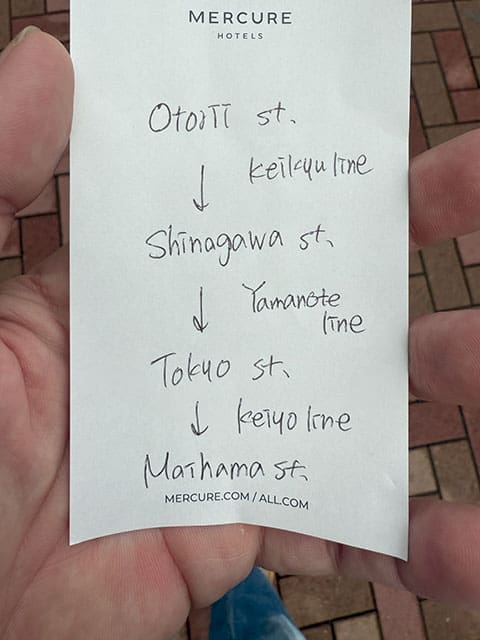 MERCURE
HOTELS
Otorii st.
↓ Keikyu line
Shinagawa st.
↓ Yamanote
line
Tokyo st.
↓ Keiyo line
Maihama st.
MERCURE.COM / ALL.COM